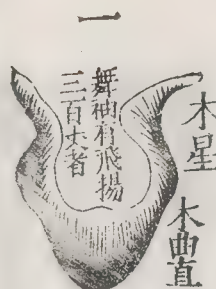 一
木星
木曲直
舞袖有飛揚
三百丈者